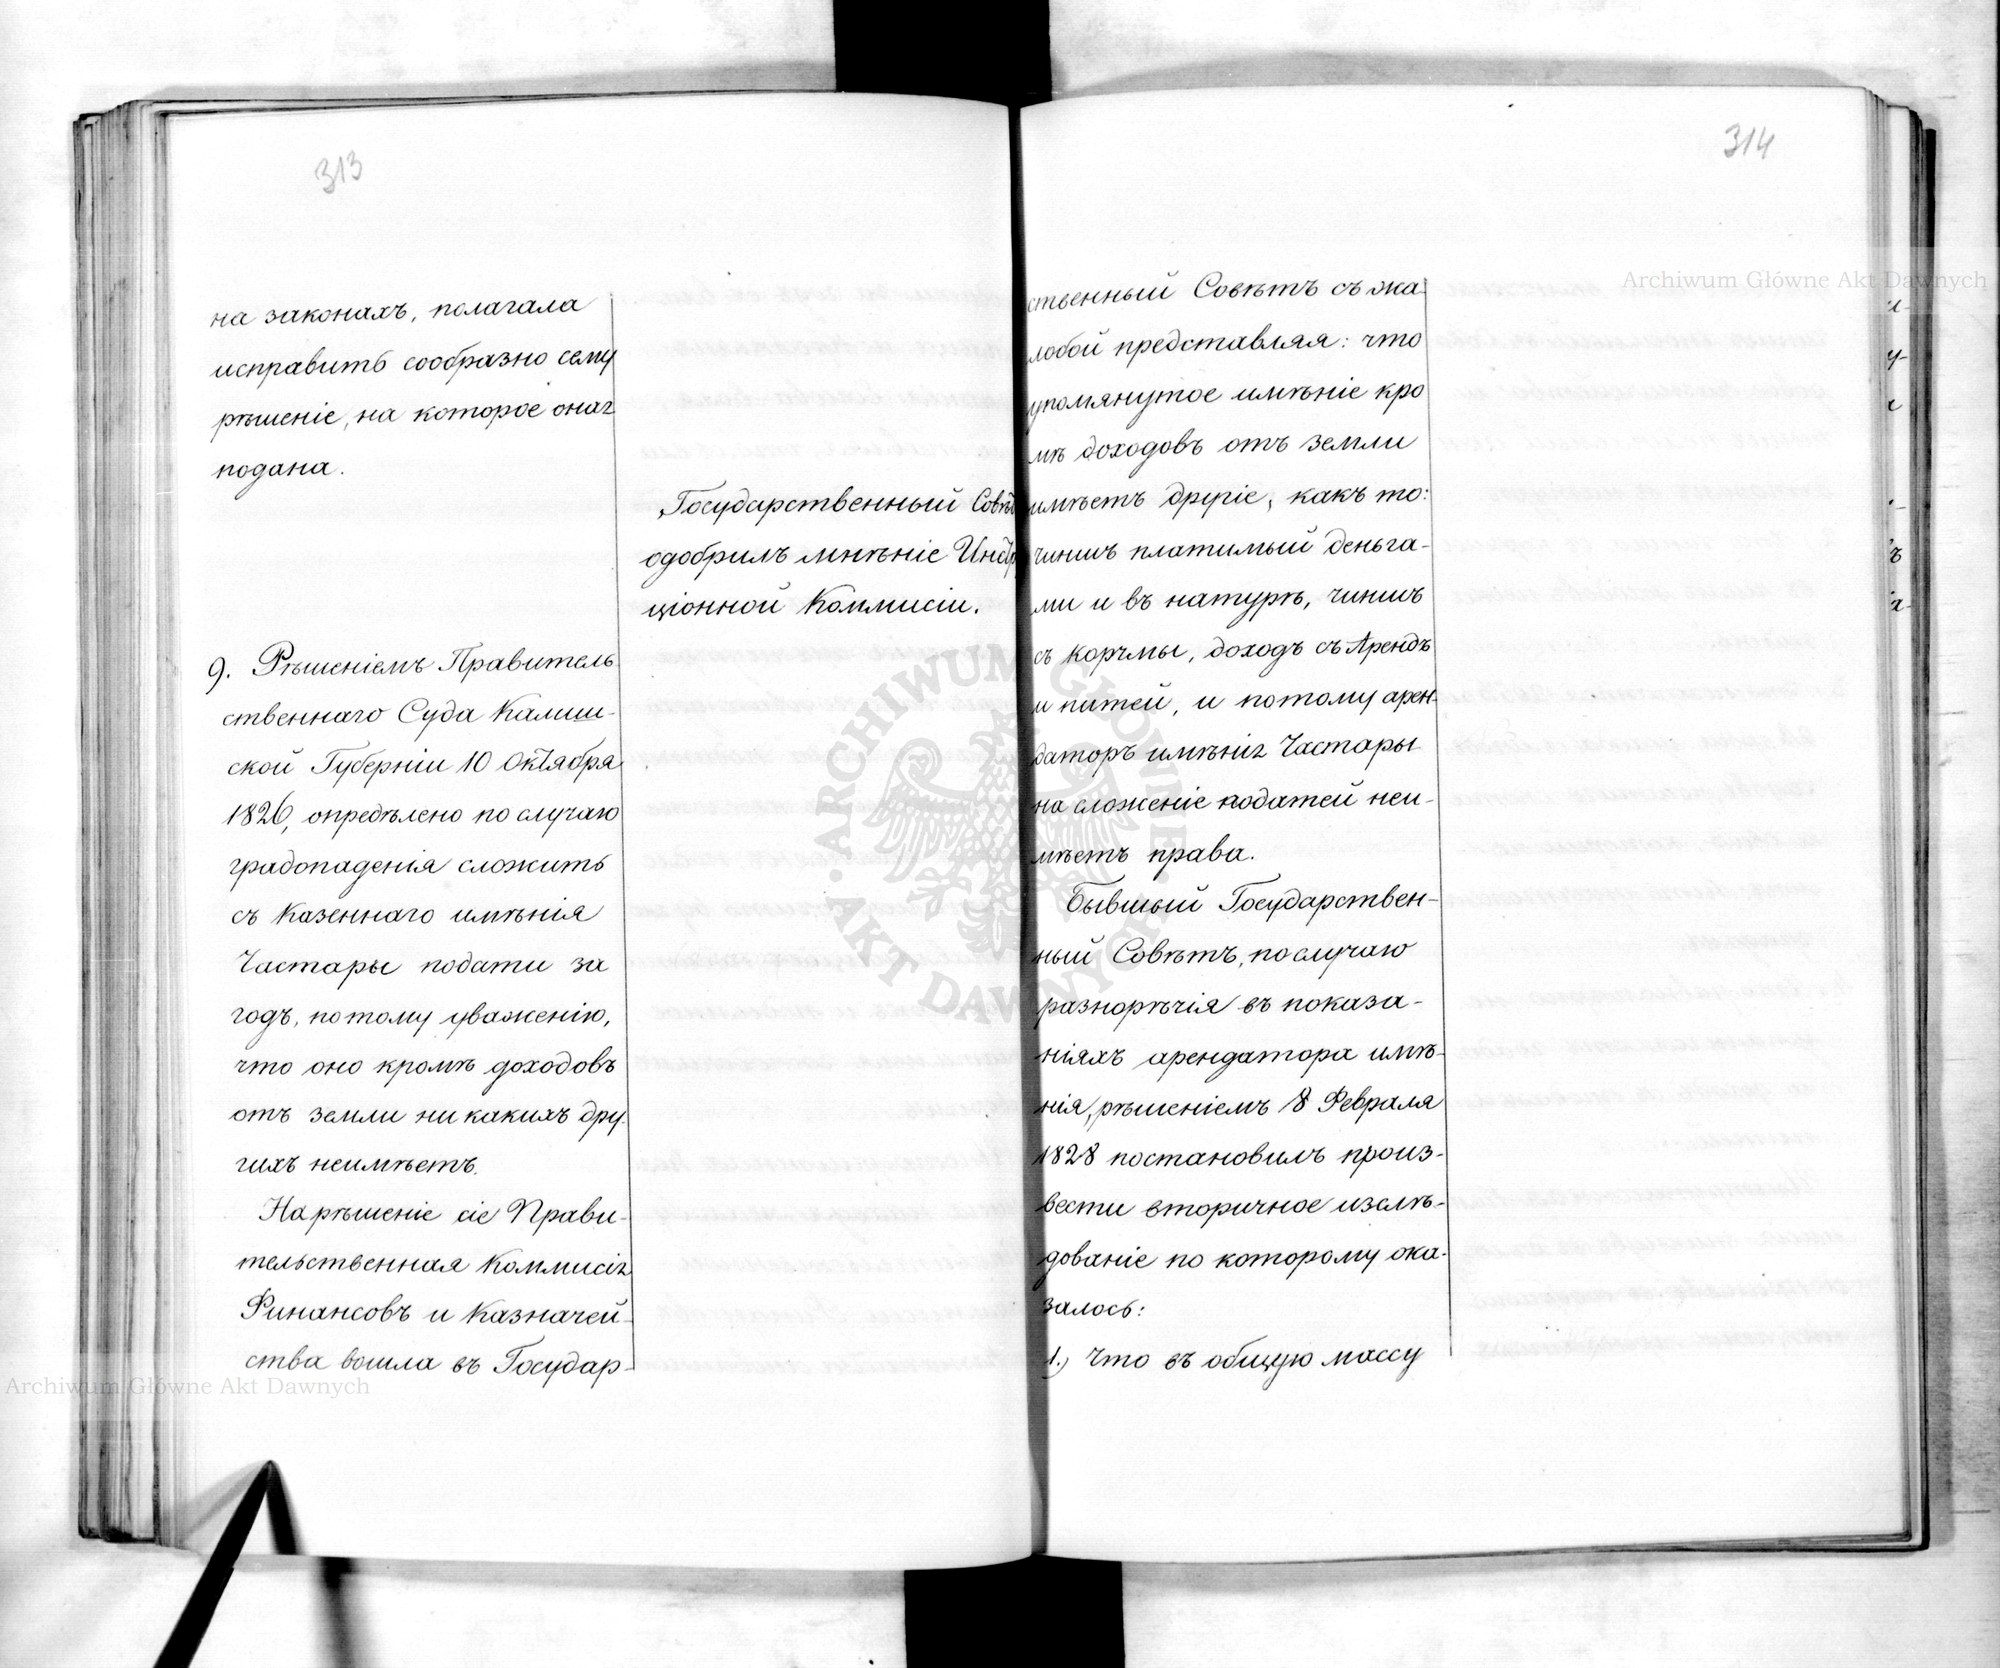 313
на законахъ, полагала
исправить сообразно сему
рѣшеніе, на которое оная
подана.
Государственный Совѣт
одобрилъ мнѣніе Инстр
ціонной Коммисіи.
9. Рѣшеніемъ Правитель
ственнаго Суда Калиш-
ской Губерніи 10 Октября
1826, опредѣлено по случаю
градопаденія сложить
съ Казеннаго имѣнія
Частары подати за
годъ, потому уваженію,
что оно кромѣ доходовъ
отъ земли ни какихъ дру-
гихъ неимѣетъ.
На рѣшеніе сіе Прави-
тельственная Коммисія
Финансовъ и Казначей-
ства вошла въ Государ-
314
ственный Совѣтъ съ жа-
лобой представляя: что
упомянутое имѣніе кро
мѣ доходовъ отъ земли
имѣетъ другіе, какъ то:
чиншъ платимый деньга-
ми и въ натурѣ, чиншъ
съ корчмы, доходъ съ Арендъ
и питей, и потому арен-
даторъ имѣнія Частары
на сложеніе податей неи-
мѣетъ права.
Бывшый Государствен-
ный Совѣтъ, по случаю
разнорѣчія въ показа-
ніяхъ арендатора имѣ-
нія, рѣшеніемъ 8 Февраля
1828 постановилъ произ-
вести вторичное изслѣ-
дованіе по которому ока-
залось:
1.) Что въ общую массу
Archiwum Główne Akt Dawnych
Archiwum Główne Akt Dawnych
ARCHIWUM GŁÓWNE AKT DAWNYCH